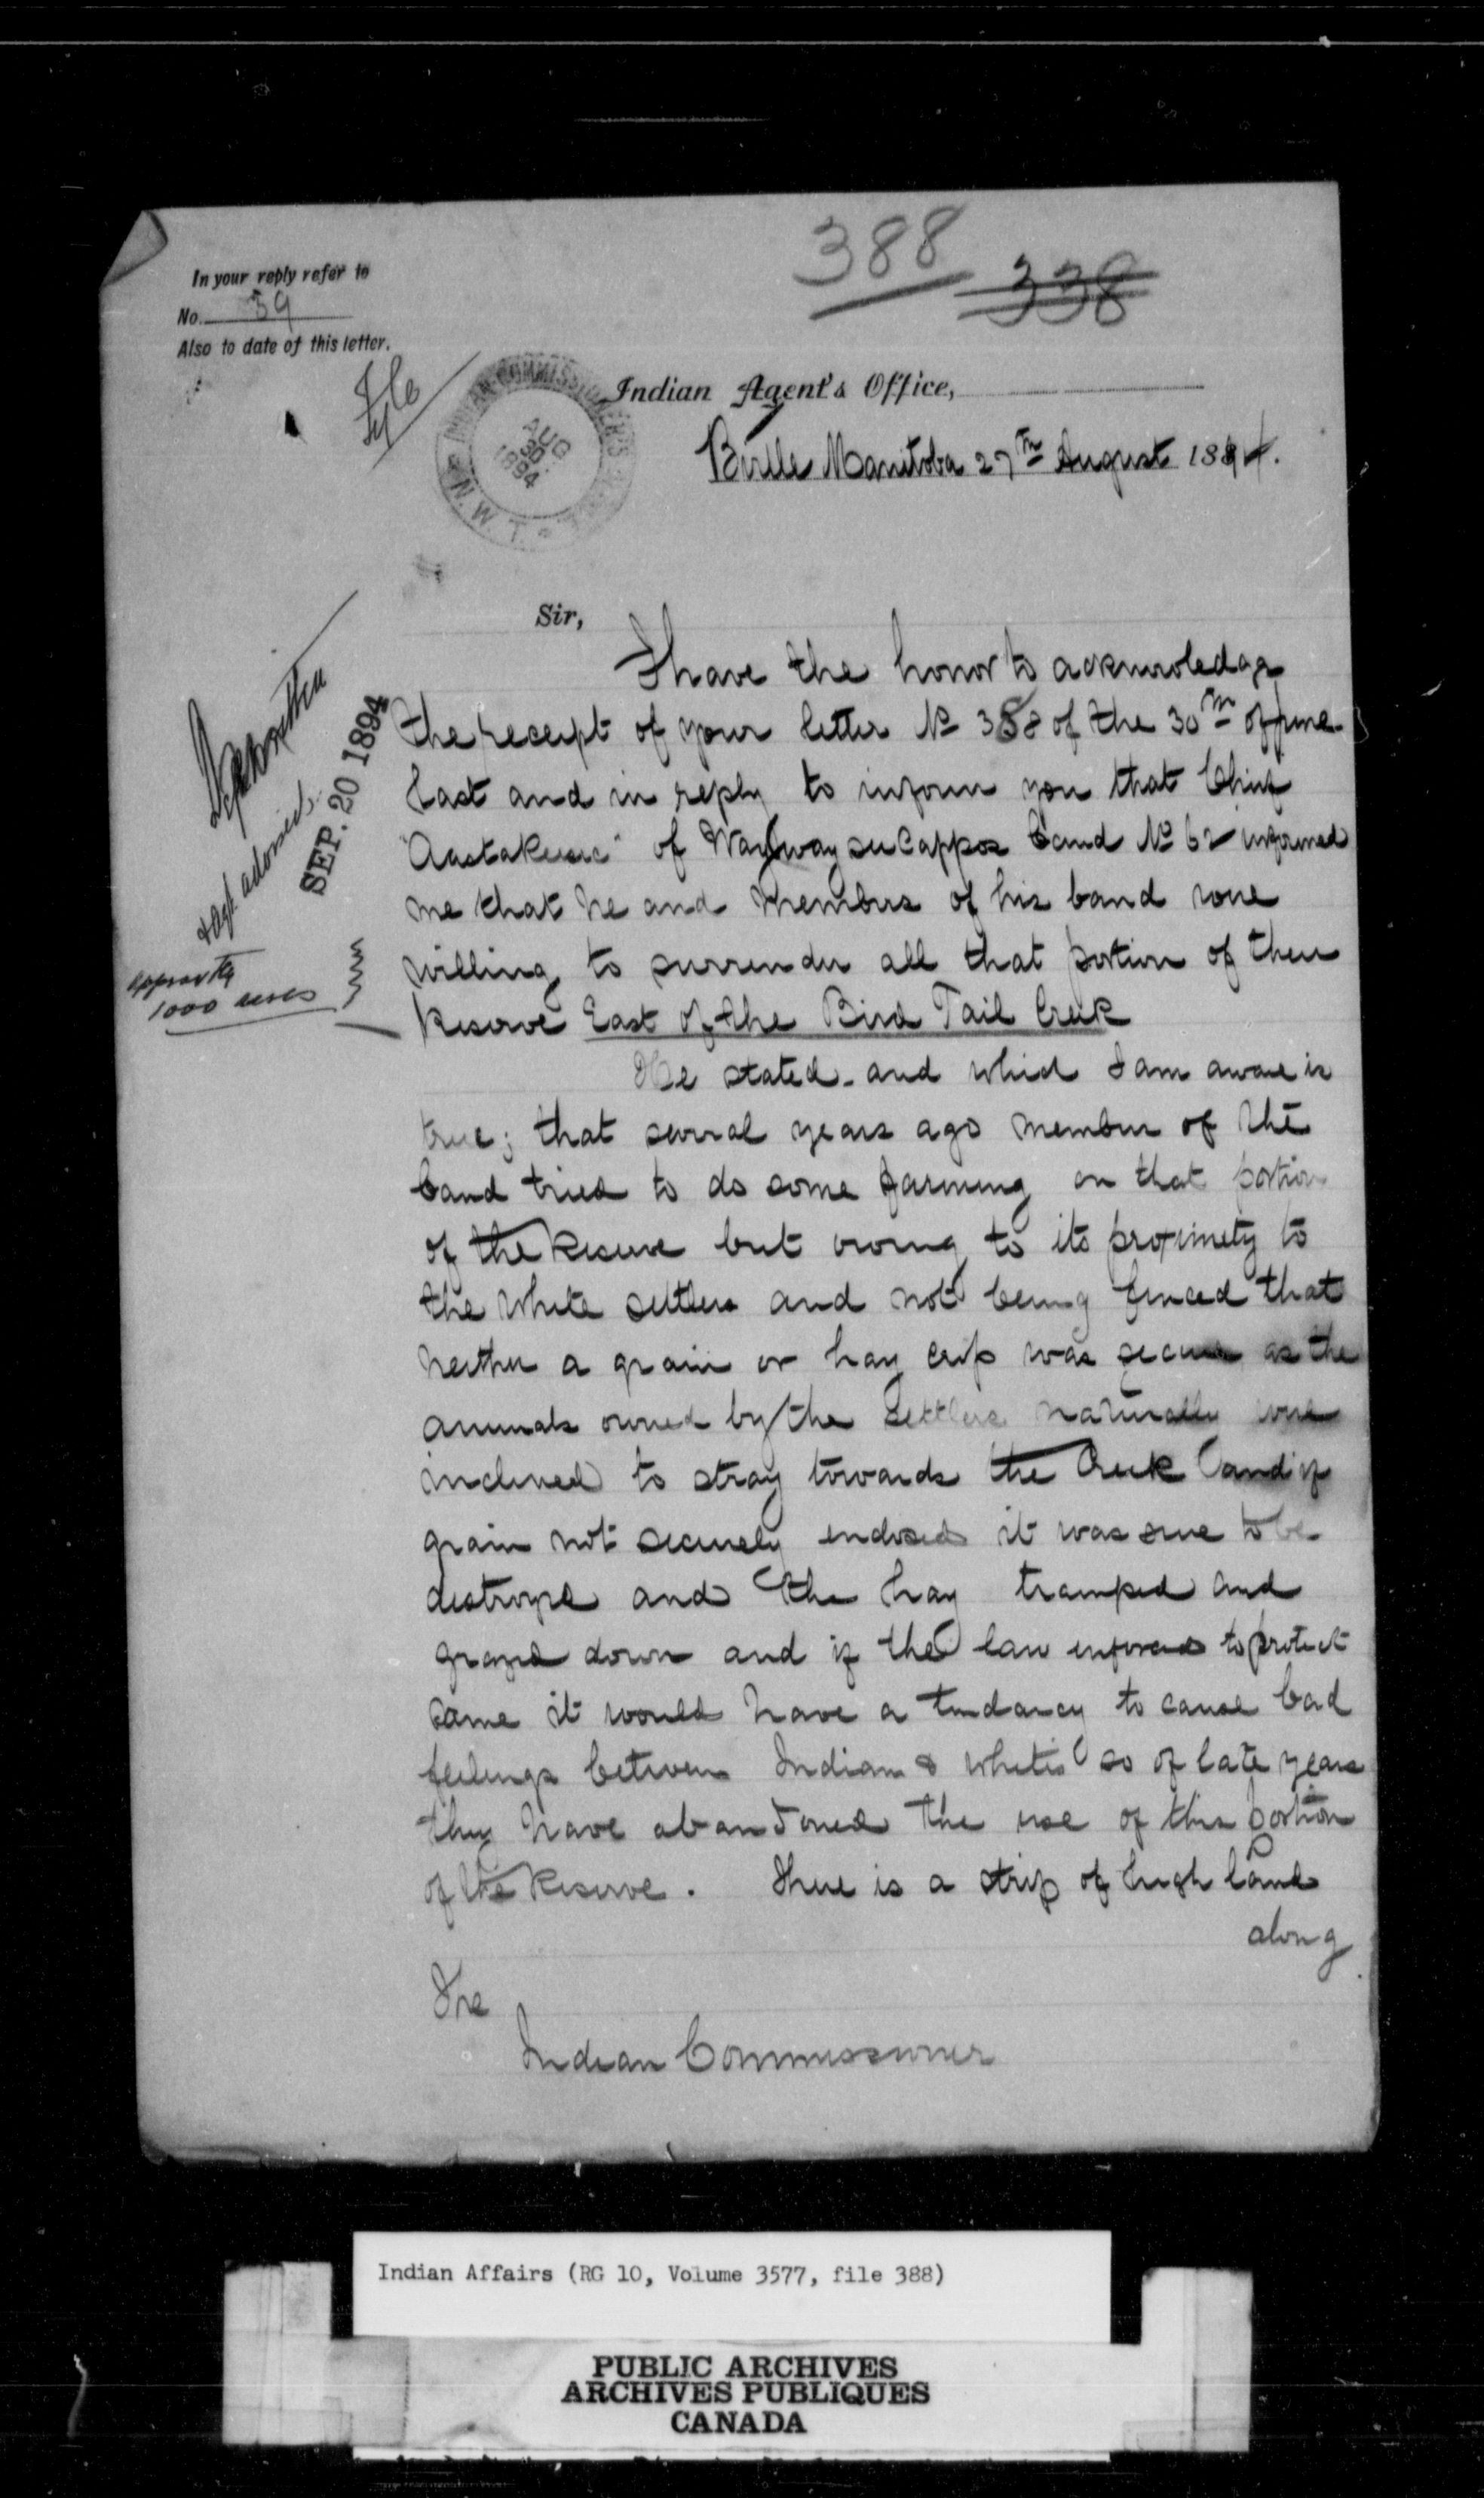 388 338
In your reply refer to
No. 39
Also to date of this letter.
File
Indian Agent's Office,
INDIAN COMMISSIONER'S
AUG
30
1894
N. W. T.
Birtle Manitoba 27th August 1894.
Sir,
I have the honor to acknowledge
the receipt of your letter No 388 of the 30th of June
last and in reply to inform you that Chief
"Aastakeesic" of Waywayseecappos band No 62 informed
me that he and members of his band were
willing to surrender all that portion of their
Reserve East of the Bird Tail Creek
SEP. 20 1894
& Agt advised
1000 acres
He stated - and which I am aware is
true; that several years ago member of the
band tried to do some farming on that portion
of the Reserve but owing to its proximety to
the white settlers and not being fenced that
neither a grain or hay crop was secure as the
animals owned by the settlers naturally were
inclined to stray towards the Creek and if
grain not securely enclosed it was sure to be
destroyed and the hay tramped and
grazed down and if the law enforced to protect
same it would have a tendancy to cause bad
feelings between Indian & whites so of late years
they have abandoned the use of this portion
of the Reserve. There is a strip of high land
along
The
Indian Commissioner
Indian Affairs (RG 10, Volume 3577, file 388)
PUBLIC ARCHIVES
ARCHIVES PUBLIQUES
CANADA